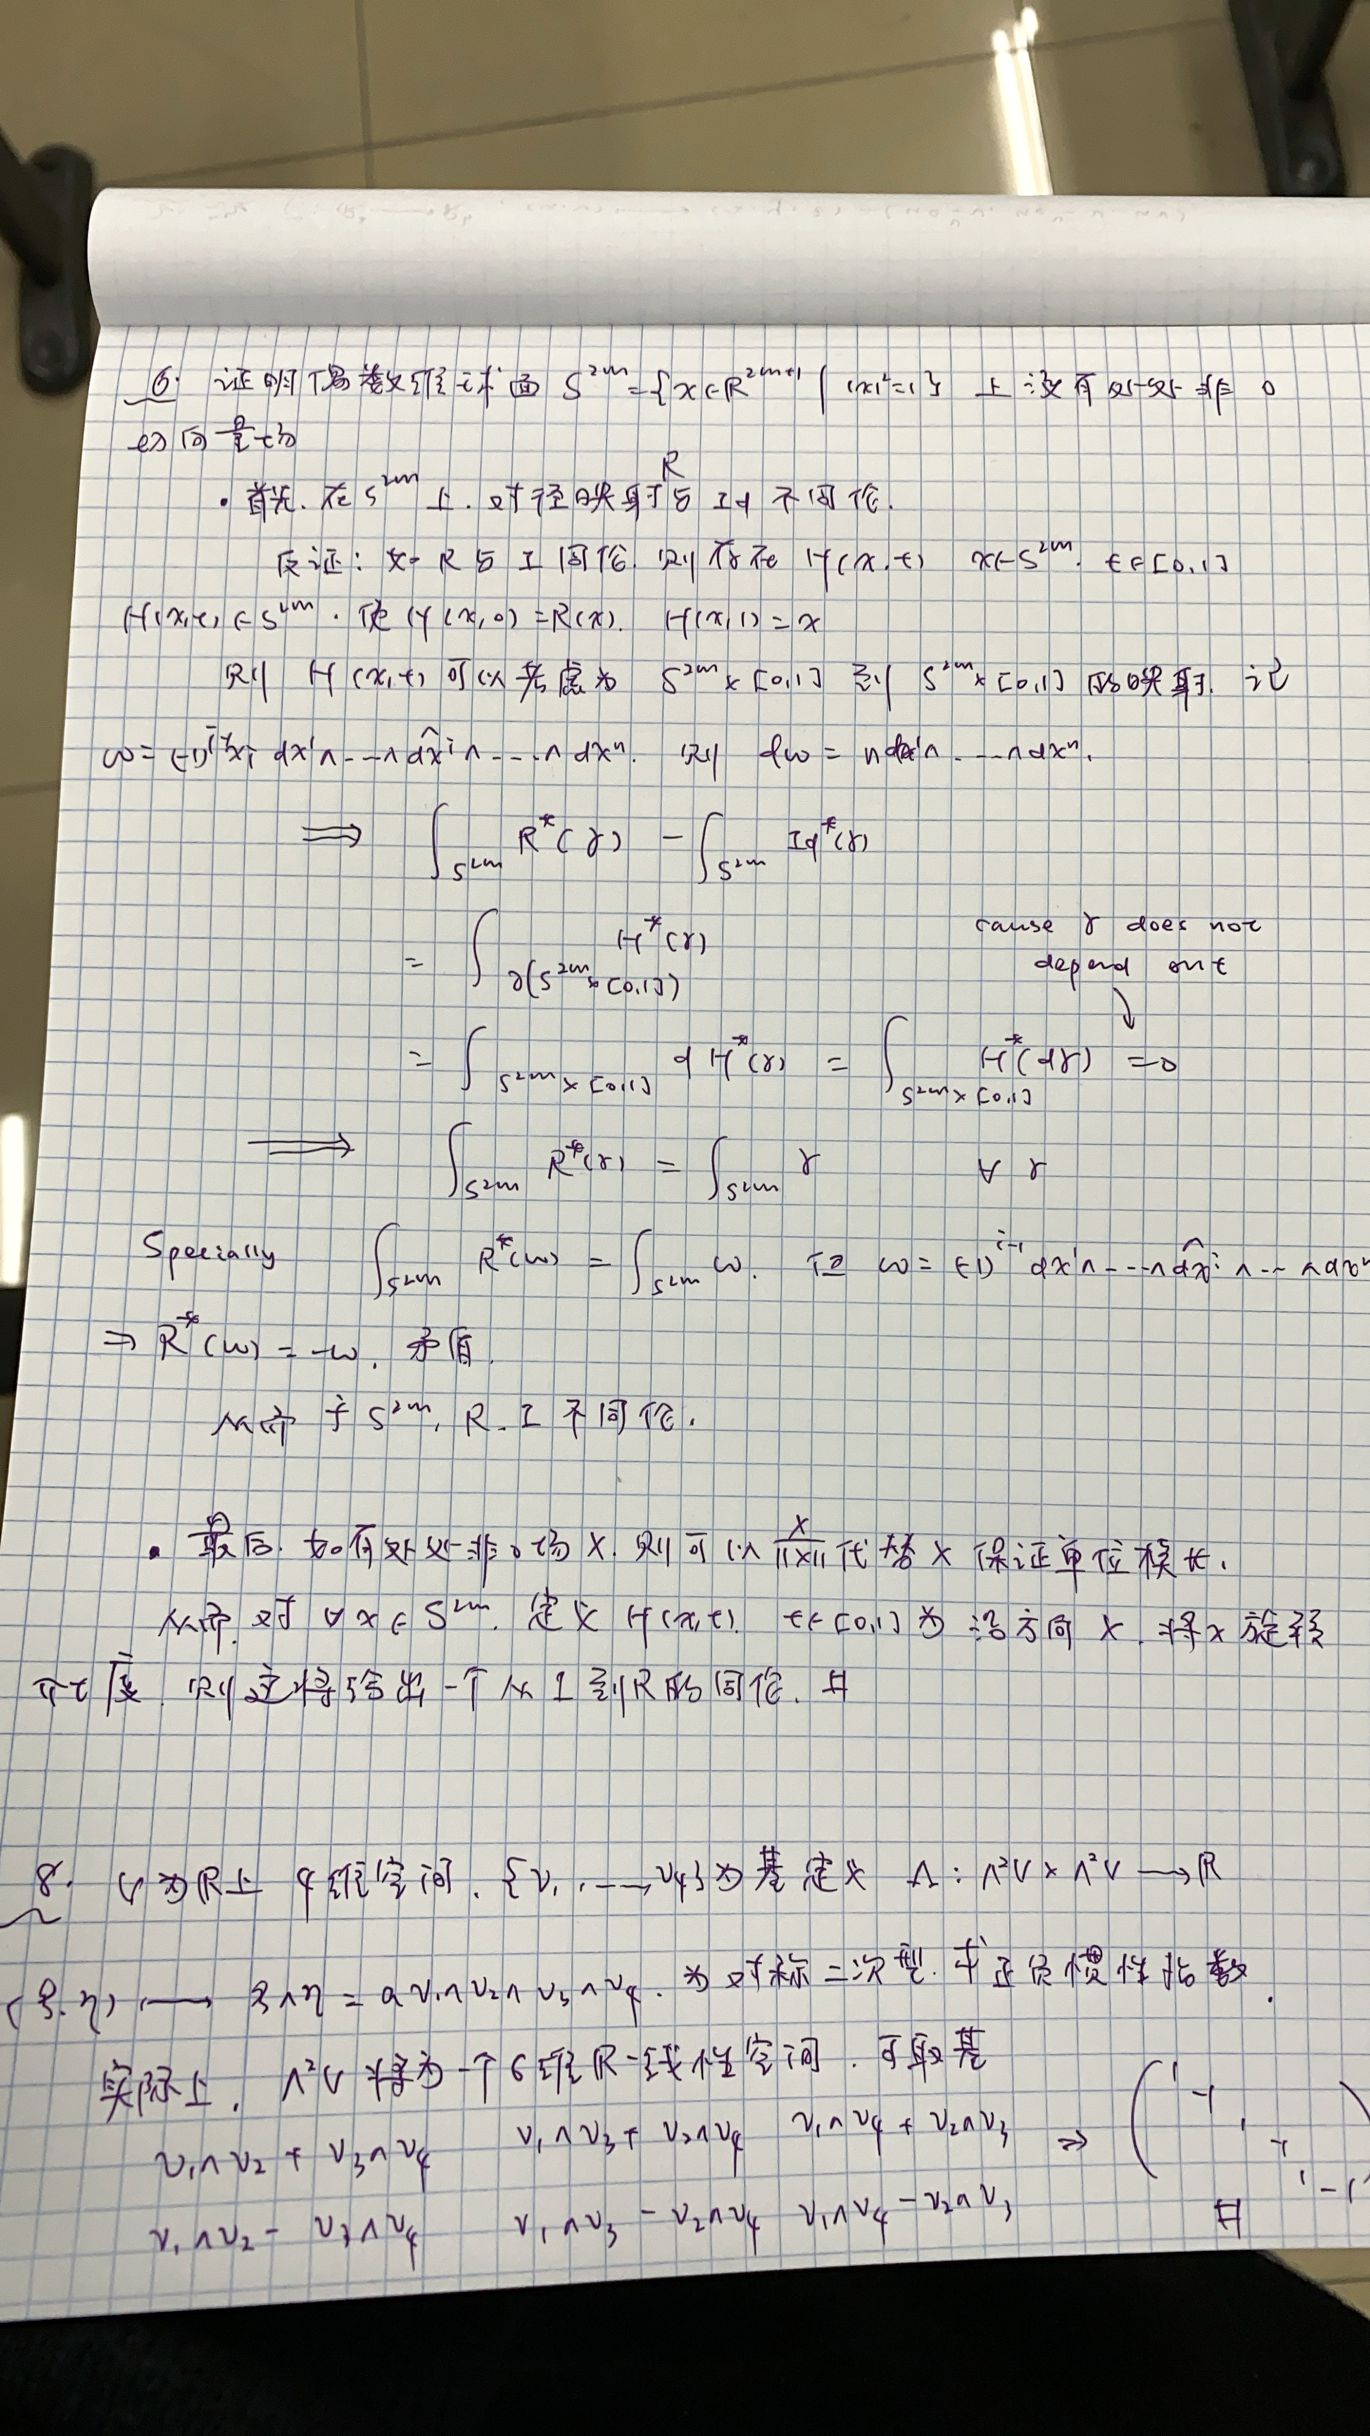 6. 证明偶数维球面 S^{2m}={x∈R^{2m+1} | |x|²=1} 上没有处处非0
切向量场
· 首先. 在 S^{2m} 上. 对径映射 R 与 Id 不同伦.
反证: 如 R 与 I 同伦. 则存在 H(x,t) x∈S^{2m}. t∈[0,1]
H(x,t)∈S^{2m}. 使 H(x,0)=R(x). H(x,1)=x
则 H(x,t) 可以考虑为 S^{2m}×[0,1] 到 S^{2m}×[0,1] 的映射. 记
ω=(-1)^{i-1}x_i dx^1∧---∧\hat{dx^i}∧---∧dx^n. 则 dω = n dx^1∧---∧dx^n.
⟹ ∫_{S^{2m}} R^*(γ) - ∫_{S^{2m}} Id^*(γ)
= ∫_{∂(S^{2m}×[0,1])} H^*(γ)
cause γ does not
depend on t
= ∫_{S^{2m}×[0,1]} d H^*(γ) = ∫_{S^{2m}×[0,1]} H^*(dγ) = 0
⟹ ∫_{S^{2m}} R^*(γ) = ∫_{S^{2m}} γ ∀ γ
Specially ∫_{S^{2m}} R^*(ω) = ∫_{S^{2m}} ω. 但 ω = (-1)^{i-1} dx^1∧---∧\hat{dx^i}∧--∧dx^n
⇒ R^*(ω) = -ω. 矛盾.
从而 于 S^{2m}, R. I 不同伦.
· 最后. 如有处处非0场 X. 则可以 X/||X|| 代替 X 保证单位模长.
从而. 对 ∀x∈S^{2m}. 定义 H(x,t). t∈[0,1] 为 沿方向 X. 将 x 旋转
πt 度. 则这将给出一个从 I 到 R 的同伦. #
8. V 为 R 上 4维空间. {v_1, ..., v_4} 为基 定义 Λ: Λ²V×Λ²V → R
(ξ.η) ⟼ ξ∧η = a v_1∧v_2∧v_3∧v_4. 为对称二次型. 求正负惯性指数.
实际上. Λ²V 将为一个6维R-线性空间. 可取基
v_1∧v_2 + v_3∧v_4 v_1∧v_3 + v_2∧v_4 v_1∧v_4 + v_2∧v_3 ⇒ (1 -1 1 -1 1 -1)
v_1∧v_2 - v_3∧v_4 v_1∧v_3 - v_2∧v_4 v_1∧v_4 - v_2∧v_3 #